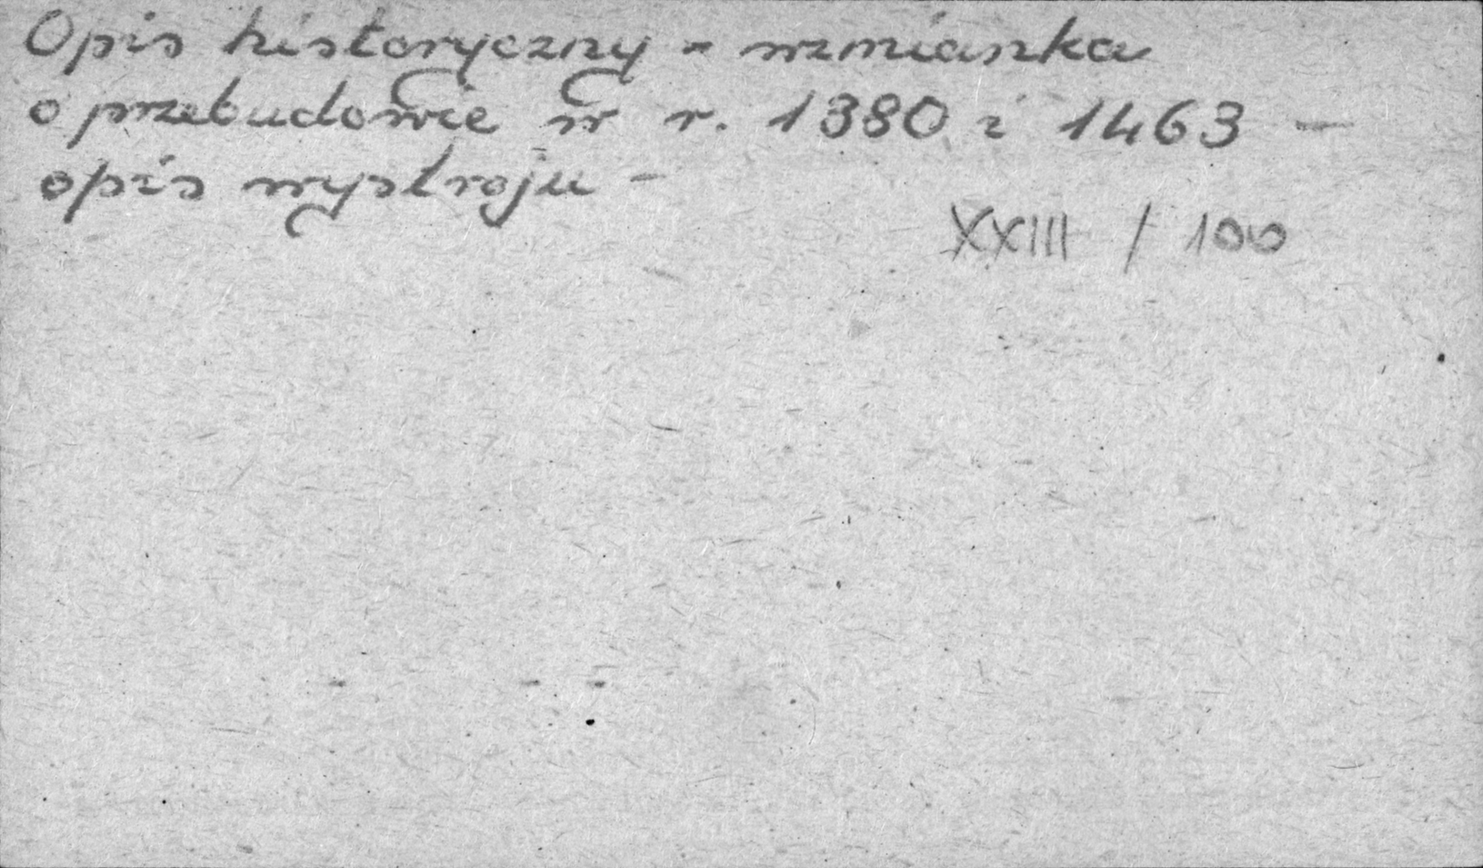 Opis historyczny - wzmianka
o przebudowie w r. 1380 i 1463 -
opis wystroju -
XXIII / 100